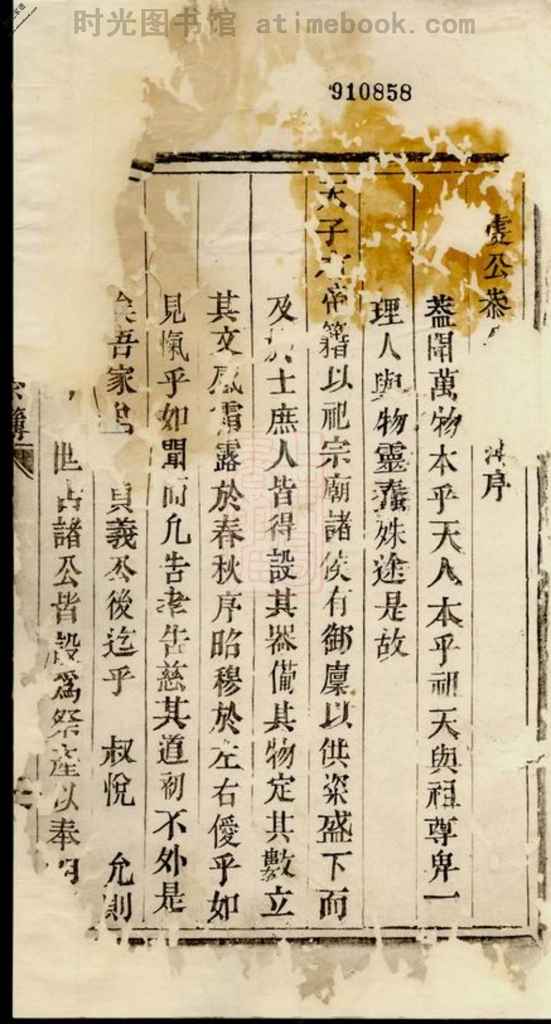 时光图书馆 atimebook.com
910858
虔公泰序
蓋聞萬物本乎天人本乎祖天與祖尊卑一
理人與物靈蠢殊途是故
天子有帝籍以祀宗廟諸侯有御廩以供粢盛下而
及於士庶人皆得設其器備其物定其數立
其文感霜露於春秋序昭穆於左右僾乎如
見愾乎如聞而凢告孝告慈其道初不外是
矣吾家貞義公後迄乎 叔悅 允則
世占諸公皆設爲祭產以奉
簿